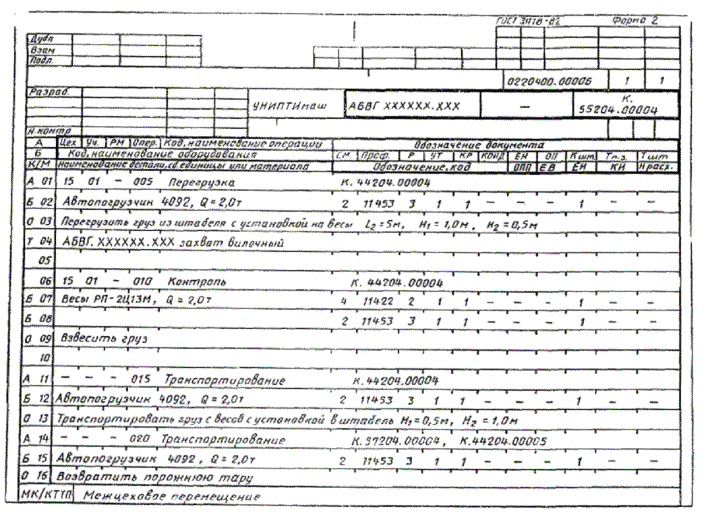 ГОСТ 3.1118-82 Форма 2
Дубл.
Взам.
Подл.
0220400.00006 1 1
Разраб.
УНИПТИмаш АБВГ.XXXXXX.XXX — К. 55204.00004
Н.контр
А Цех Уч. РМ Опер. Код, наименование операции Обозначение документа
Б Код, наименование оборудования СМ. Проф. Р УТ КР КОИД ЕН ОП Кшт. Тп.з. Тшт
К/М Наименование детали, сб. единицы или материала Обозначение, код ОПП ЕВ ЕН КИ Нрасх.
А 01 15 01 — 005 Перегрузка К. 44204.00004
Б 02 Автопогрузчик 4092, Q = 2,0т 2 11453 3 1 1 — — — 1 — —
О 03 Перегрузить груз из штабеля с установкой на весы L2=5м, H1=1,0м, H2=0,5м
Т 04 АБВГ.XXXXXX.XXX захват вилочный
05
06 15 01 — 010 Контроль К. 44204.00004
Б 07 Весы РП-2Ц13М, Q = 2,0т 4 11422 2 1 1 — — — 1 — —
Б 08 2 11453 3 1 1 — — — 1 — —
О 09 Взвесить груз
10
А 11 — — — 015 Транспортирование К.44204.00004
Б 12 Автопогрузчик 4092, Q=2,0т 2 11453 3 1 1 — — — 1 — —
О 13 Транспортировать груз с весов с установкой в штабель H1=0,5м, H2=1,0м
А 14 — — — 020 Транспортирование К.57204.00004, К.44204.00005
Б 15 Автопогрузчик 4092, Q=2,0т 2 11453 3 1 1 — — — 1 — —
О 16 Возвратить порожнюю тару
МК/КТТП Межцеховое перемещение